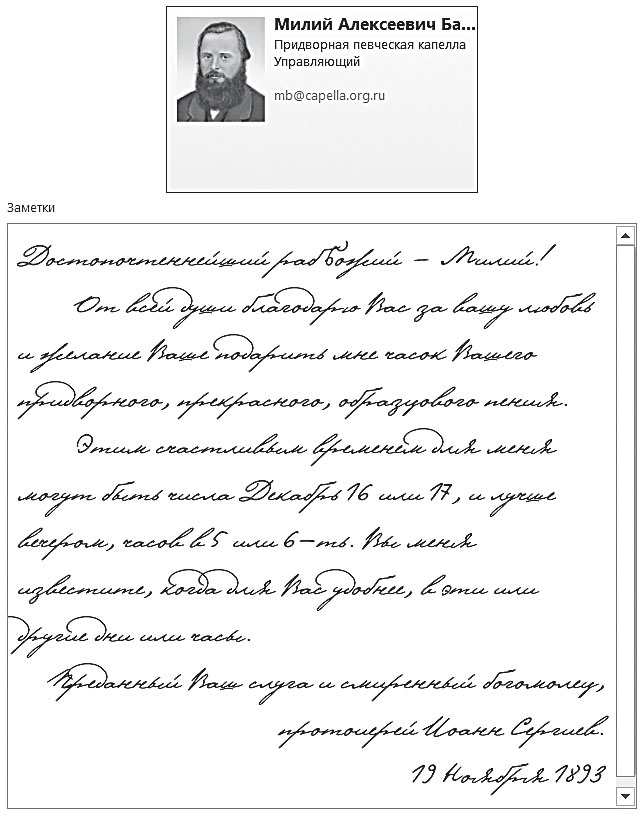 Милий Алексеевич Ба...
Придворная певческая капелла
Управляющий
mb@capella.org.ru
Заметки
Достопочтеннейший раб Божий – Милий!
От всей души благодарю Вас за вашу любовь
и желание Ваше подарить мне часок Вашего
придворного, прекрасного, образцового пения.
Этим счастливым временем для меня
могут быть числа Декабрь 16 или 17, и лучше
вечером, часов в 5 или 6–ть. Вы меня
известите, когда для Вас удобнее, в эти или
другие дни или часы.
Преданный Ваш слуга и смиренный богомолец,
протоиерей Иоанн Сергиев.
19 Ноября 1893